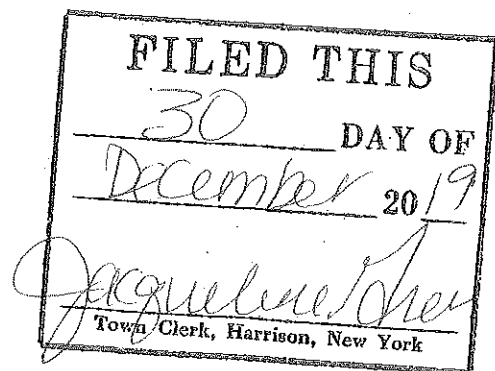 FILED THIS
30 DAY OF
December 2019
Jacqueline
Town Clerk, Harrison, New York